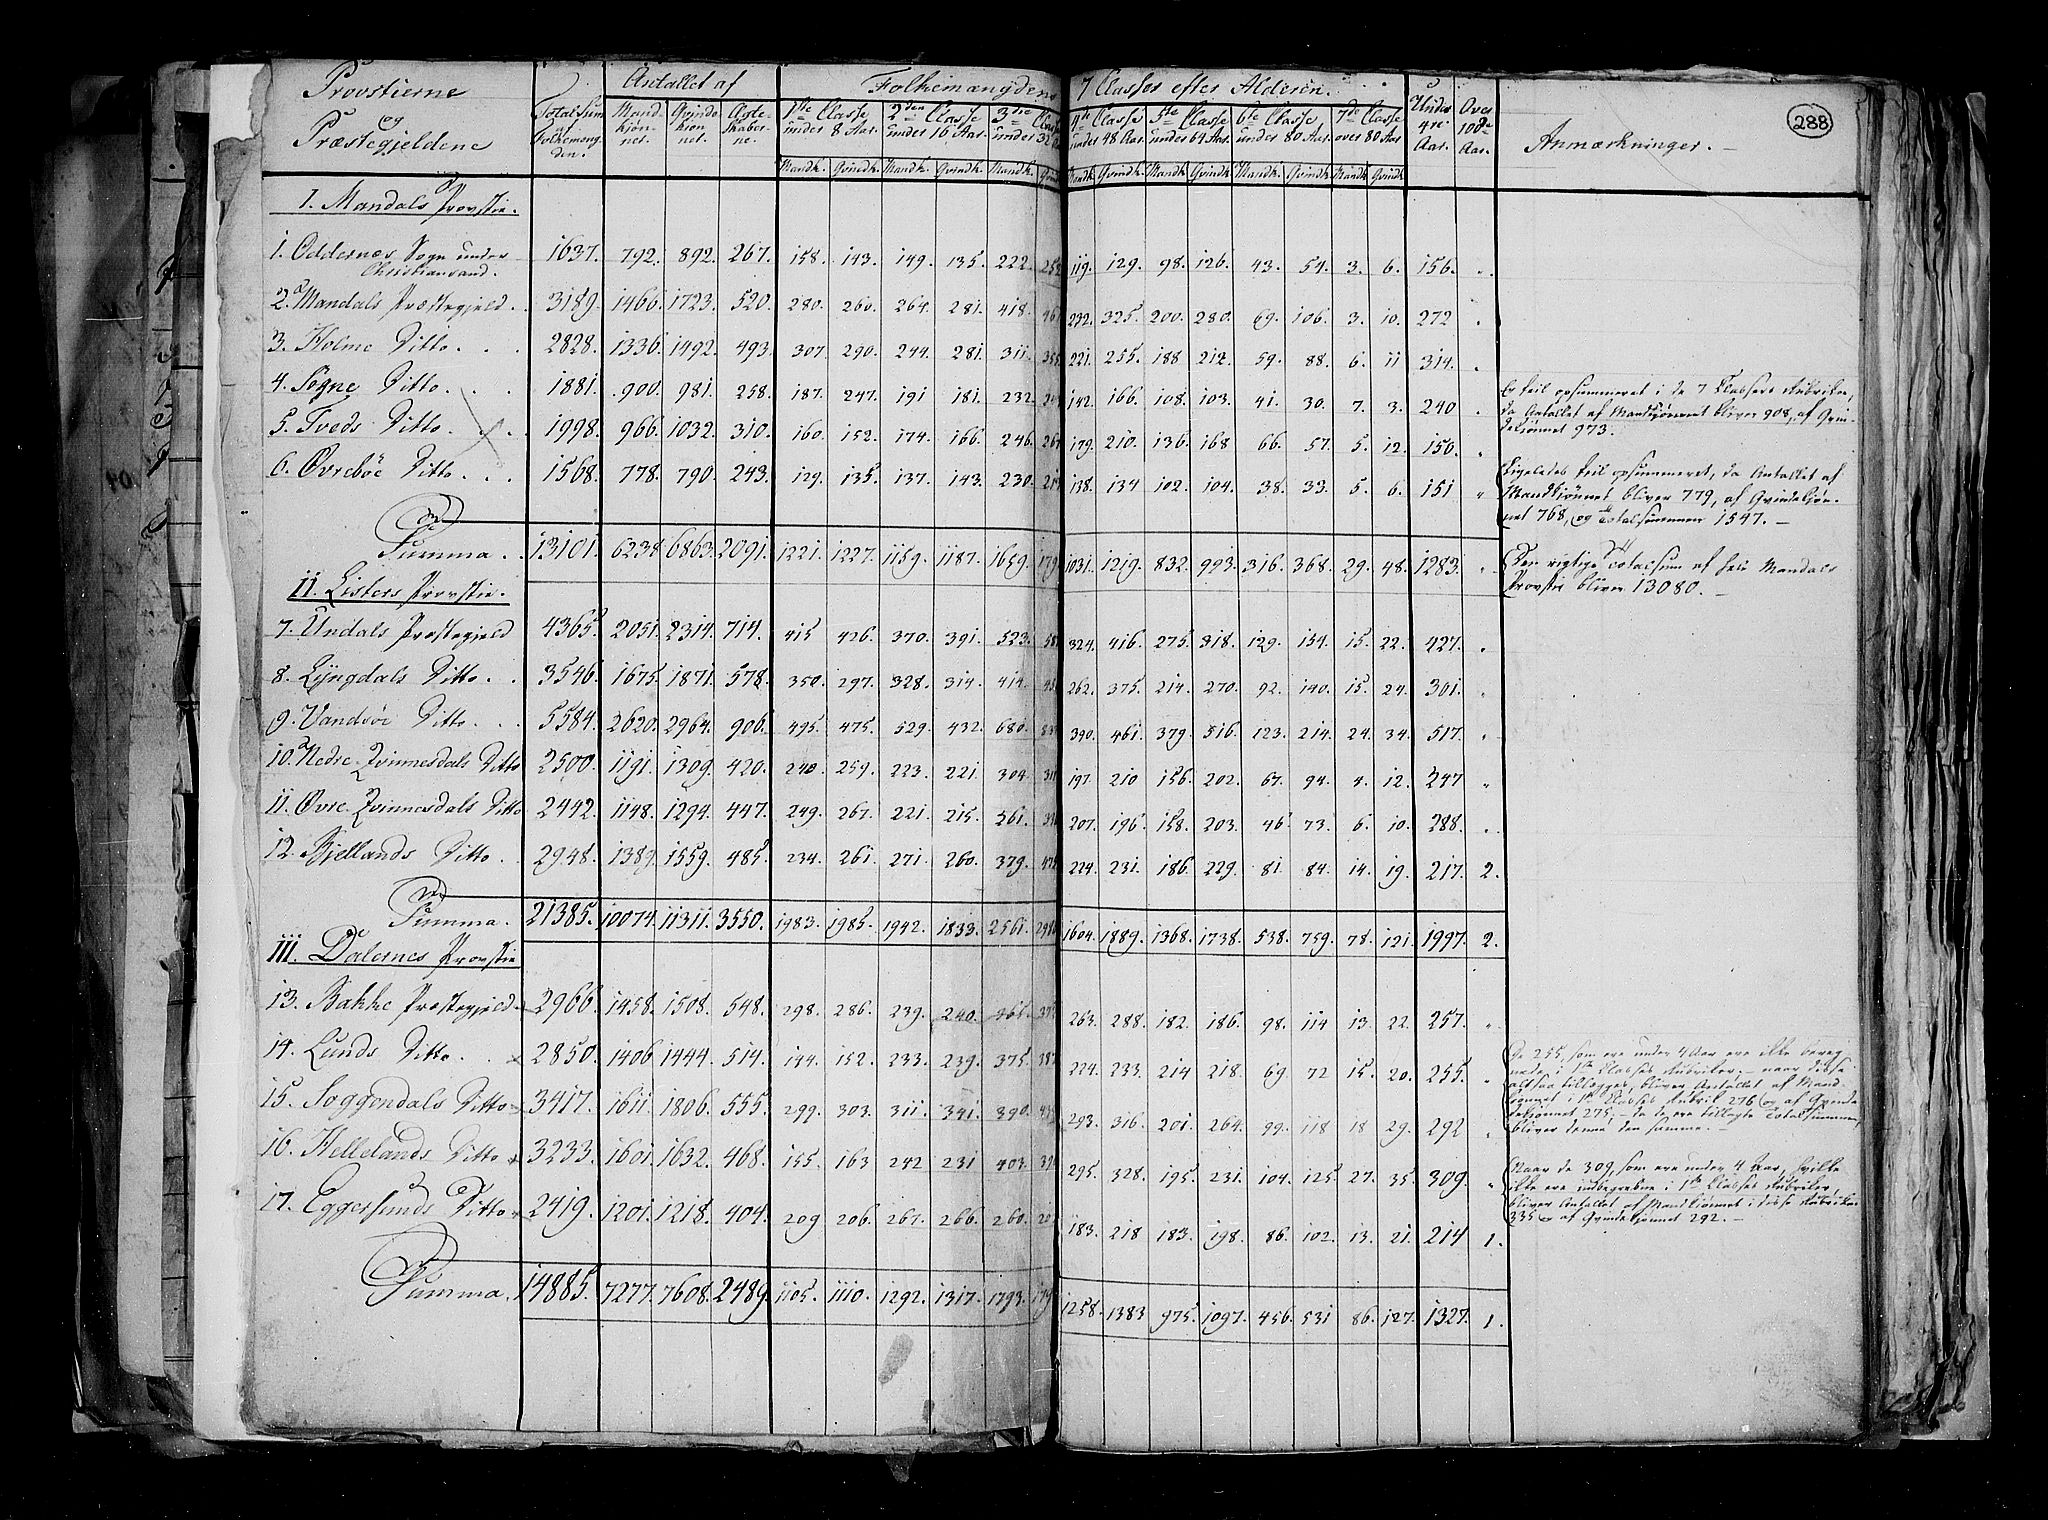 288
Provstierne og Præstegjeldene | Totalsum Folkemængden. | Antallet af | Folkemængdens 7 Classer efter Alderen. | Under 4re Aar. | Over 100de Aar. | Anmærkninger.
Mandkiönnet. | Qvindekiönnet. | Ægteskaberne. | 1ste Classe under 8 Aar. | 2den Classe under 16 Aar. | 3die Classe under 32 | 4de Classe under 48 Aar. | 5te Classe under 64 Aar. | 6te Classe under 80 Aar. | 7de Classe over 80 Aar
Mandk. Qvindk. Mandk. Qvindk. Mandk. Mandk. Qvindk. Mandk. Qvindk. Mandk. Qvindk. Mandk. Qvindk.
I. Mandals Provstie.
1. Oddernæs Sogn under Christiansand. 1637. 792. 892. 267. 158. 143. 149. 135. 222. 252 119. 129. 98. 126. 43. 54. 3. 6. 156. "
2. Mandals Præstegjeld. 3189. 1466. 1723. 520. 280. 260. 264. 281. 418. 325. 200. 280. 69. 106. 3. 10. 272 "
3. Holme Ditto. 2828. 1336. 1492. 493. 307. 290. 244. 281. 311. 221. 255. 188 212. 59. 88. 6. 11 314. "
4. Sogne Ditto. 1881. 900. 981. 258. 187. 247. 191 181. 232. 142. 166. 108. 103. 41. 30. 7. 3. 240 " Er feil opsummeret i de 7 Classers Rubriker,
da Antallet af Mandkjønnet bliver 908, af Qvin-
dekiønnet 973.
5. Tveds Ditto. 1998. 966. 1032. 310. 160. 152. 174. 166. 246. 267 179. 210. 136. 168 66. 57. 5. 12. 150. "
6. Øvrebøe Ditto. 1568. 778. 790. 243. 129. 135. 137. 143. 230. 138. 134 102. 104. 38. 33. 5. 6. 151 " Ligeledes feil opsummeret, da Antallet af
Mandkjønnet bliver 779, af Qvindekjøn-
net 768, og Totalsummen 1547. –
Summa. 13101. 6238 6863. 2091. 1221. 1227. 1159. 1187. 1659. 1031. 1219. 832. 993. 316. 368. 29. 48. 1283. " Den rigtige Totalsum af hele Mandals
Provstie bliver 13080. –
II. Listers Provstie.
7. Undals Præstegjeld 4365. 2051. 2314. 714. 415 426. 370. 391. 523. 324. 416. 275. 318. 129. 154. 15. 22. 427. "
8. Lyngdals Ditto. 3546. 1675. 1871. 578. 350. 297. 328. 314. 414. 262. 375. 214. 270. 92. 140. 15. 24. 301. "
9. Vandsøe Ditto. 5584. 2620. 2964. 906. 495. 475. 529. 432. 680. 390. 461. 379. 516. 123. 214. 24. 34. 517. "
10. Nedre Qvinnesdals Ditto 2500. 1191. 1309. 420. 240. 259. 223. 221. 304. 197. 210 156. 202. 67. 94. 4. 12. 247 "
11. Øvre Qvinnesdals Ditto 2442. 1148. 1294. 447. 249. 267. 221. 215. 261. 207. 196. 158. 203. 46 73. 6. 10. 288. "
12. Bjellands Ditto. 2948. 1389. 1559. 485. 234. 261. 271. 260. 379. 224. 231. 186. 229. 81. 84. 14. 19. 217. 2.
Summa. 21385. 10074. 11311. 3550. 1983. 1985. 1942. 1833. 2561. 1604. 1889. 1368. 1738. 538. 759. 78. 121. 1997. 2.
III. Dalernes Provstie
13. Bakke Præstegjeld. 2966. 1458. 1508. 548. 298. 286. 239. 240. 263. 288. 182. 186. 98. 114 13. 22. 257. "
14. Lunds Ditto. 2850. 1406. 1444. 514. 144. 152. 233. 239. 375. 224. 233. 214 218. 69. 72 15. 20. 255. " De 255, som ere under 4 Aar ere ikke bereg-
nede i 1ste Classes Rubriker; – naar disse
altsaa tillægges, bliver Antallet af Mand-
kiönnet i 1ste Classes Rubrik 276 og af Qvinde-
kiønnet 275; –
bliver denne den samme. –
15. Soggendals Ditto 3417. 1611. 1806. 555. 299. 303. 311. 341. 390. 293. 316. 201. 264. 99. 118 18 29. 292 "
16. Hellelands Ditto 3233. 1601. 1632. 468. 155. 163 242 231 403. 295. 328. 195. 231. 104. 125. 27. 35. 309. " Naar de 309, som ere under 4 Aar, hvilke
ikke ere indbegrebne i 1ste Classes Rubriker,
bliver Antallet af Mandkiønnet i disse Rubriker
335 og af Qvindekjønnet 292. –
17. Eggersunds Ditto 2419. 1201. 1218. 404. 209 206. 267. 266. 260. 183. 218 183. 198. 86. 102. 13. 21. 214 1.
Summa. 14885. 7277. 7608. 2489. 1105. 1110. 1292. 1317. 1793. 1258. 1383 975. 1097. 456. 531 86. 127. 1327. 1.